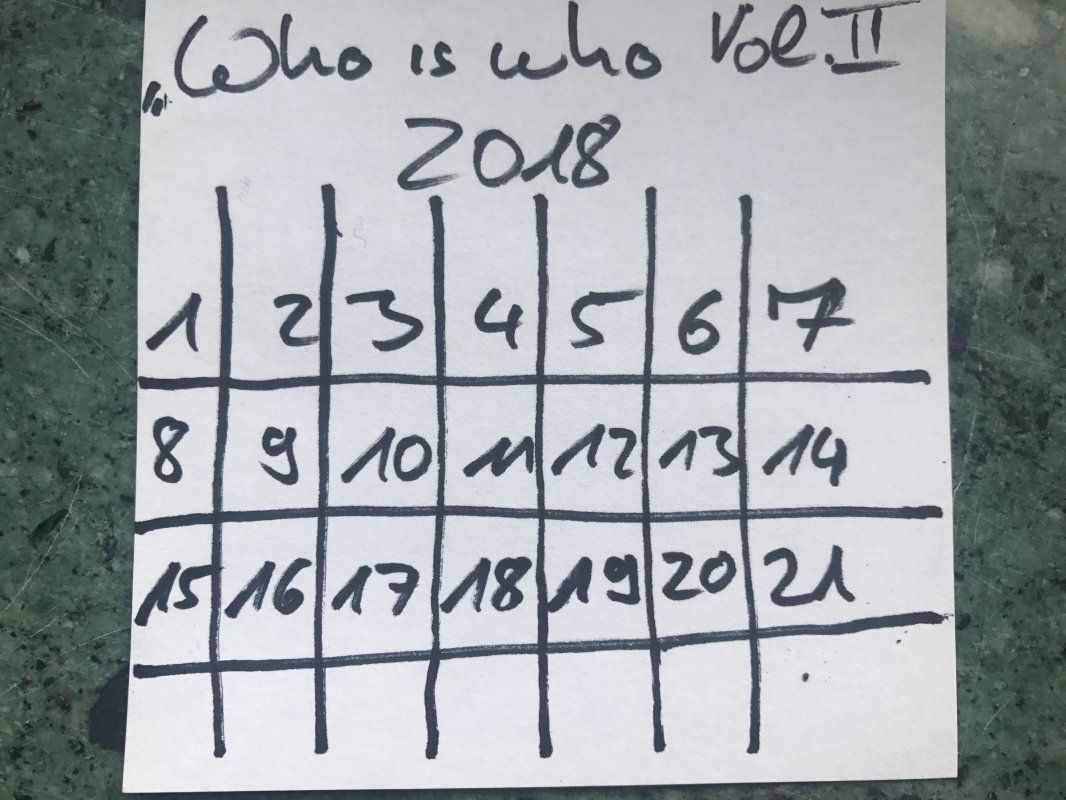 „Who is who Vol. II
2018
1 2 3 4 5 6 7
8 9 10 11 12 13 14
15 16 17 18 19 20 21